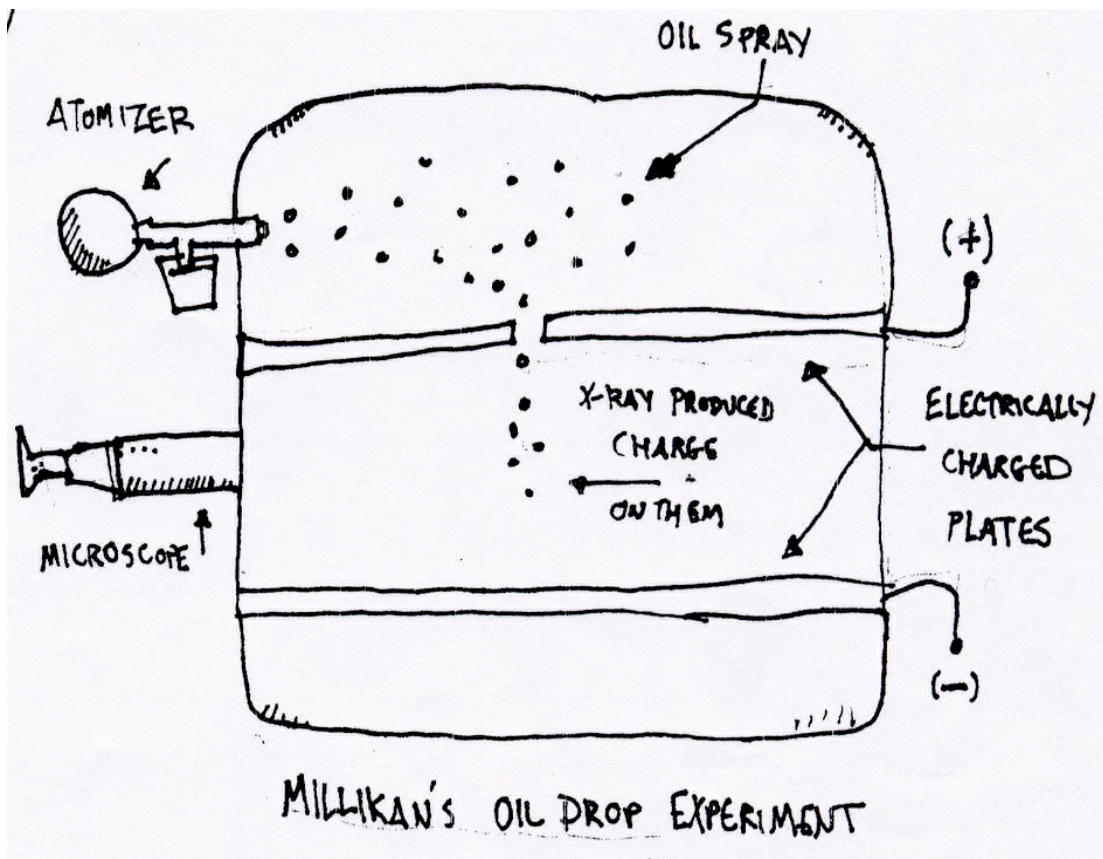 OIL SPRAY
ATOMIZER
(+)
X-RAY PRODUCED
CHARGE
ON THEM
ELECTRICALLY
CHARGED
PLATES
MICROSCOPE
(-)
MILLIKAN'S OIL DROP EXPERIMENT